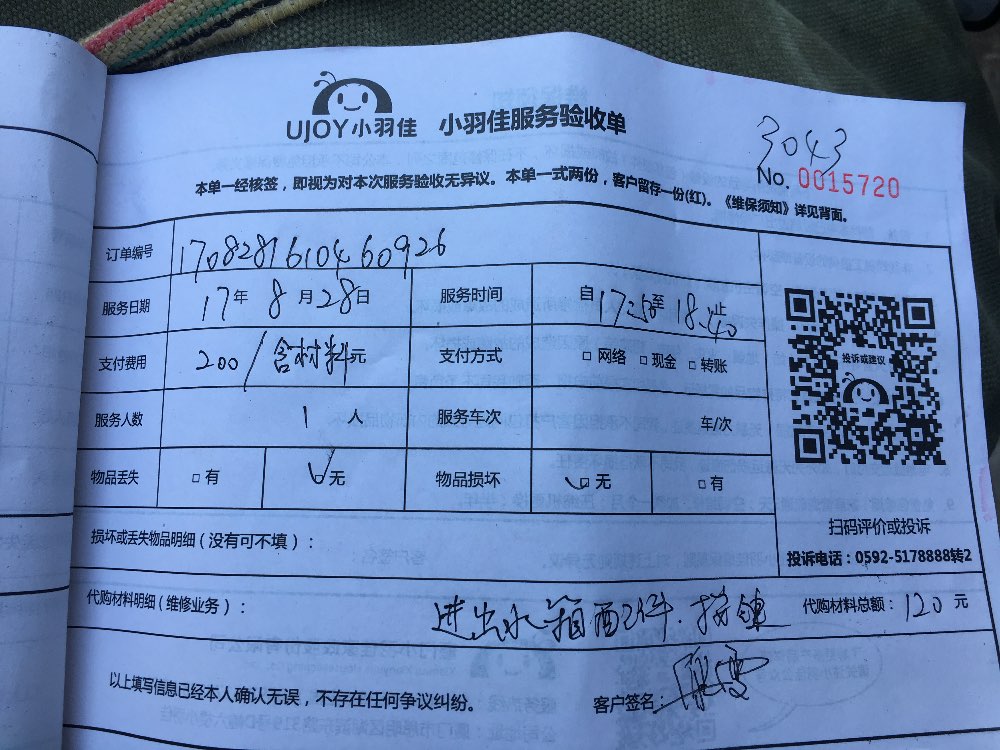 UJOY小羽佳 小羽佳服务验收单
3043
No. 0015720
本单一经核签，即视为对本次服务验收无异议。本单一式两份，客户留存一份(红)。《维保须知》详见背面。
订单编号 1708281610460926
服务日期 17年 8月28日 服务时间 自17:50至18:40止
支付费用 200/含材料元 支付方式 □网络 □现金 □转账
投诉或建议
服务人数 1人 服务车次 车/次
物品丢失 □有 ✓无 物品损坏 ✓□无 □有
扫码评价或投诉
损坏或丢失物品明细（没有可不填）：
投诉电话：0592-5178888转2
代购材料明细（维修业务）： 进出水箱配件. 代购材料总额：120元
以上填写信息已经本人确认无误，不存在任何争议纠纷。 客户签名：